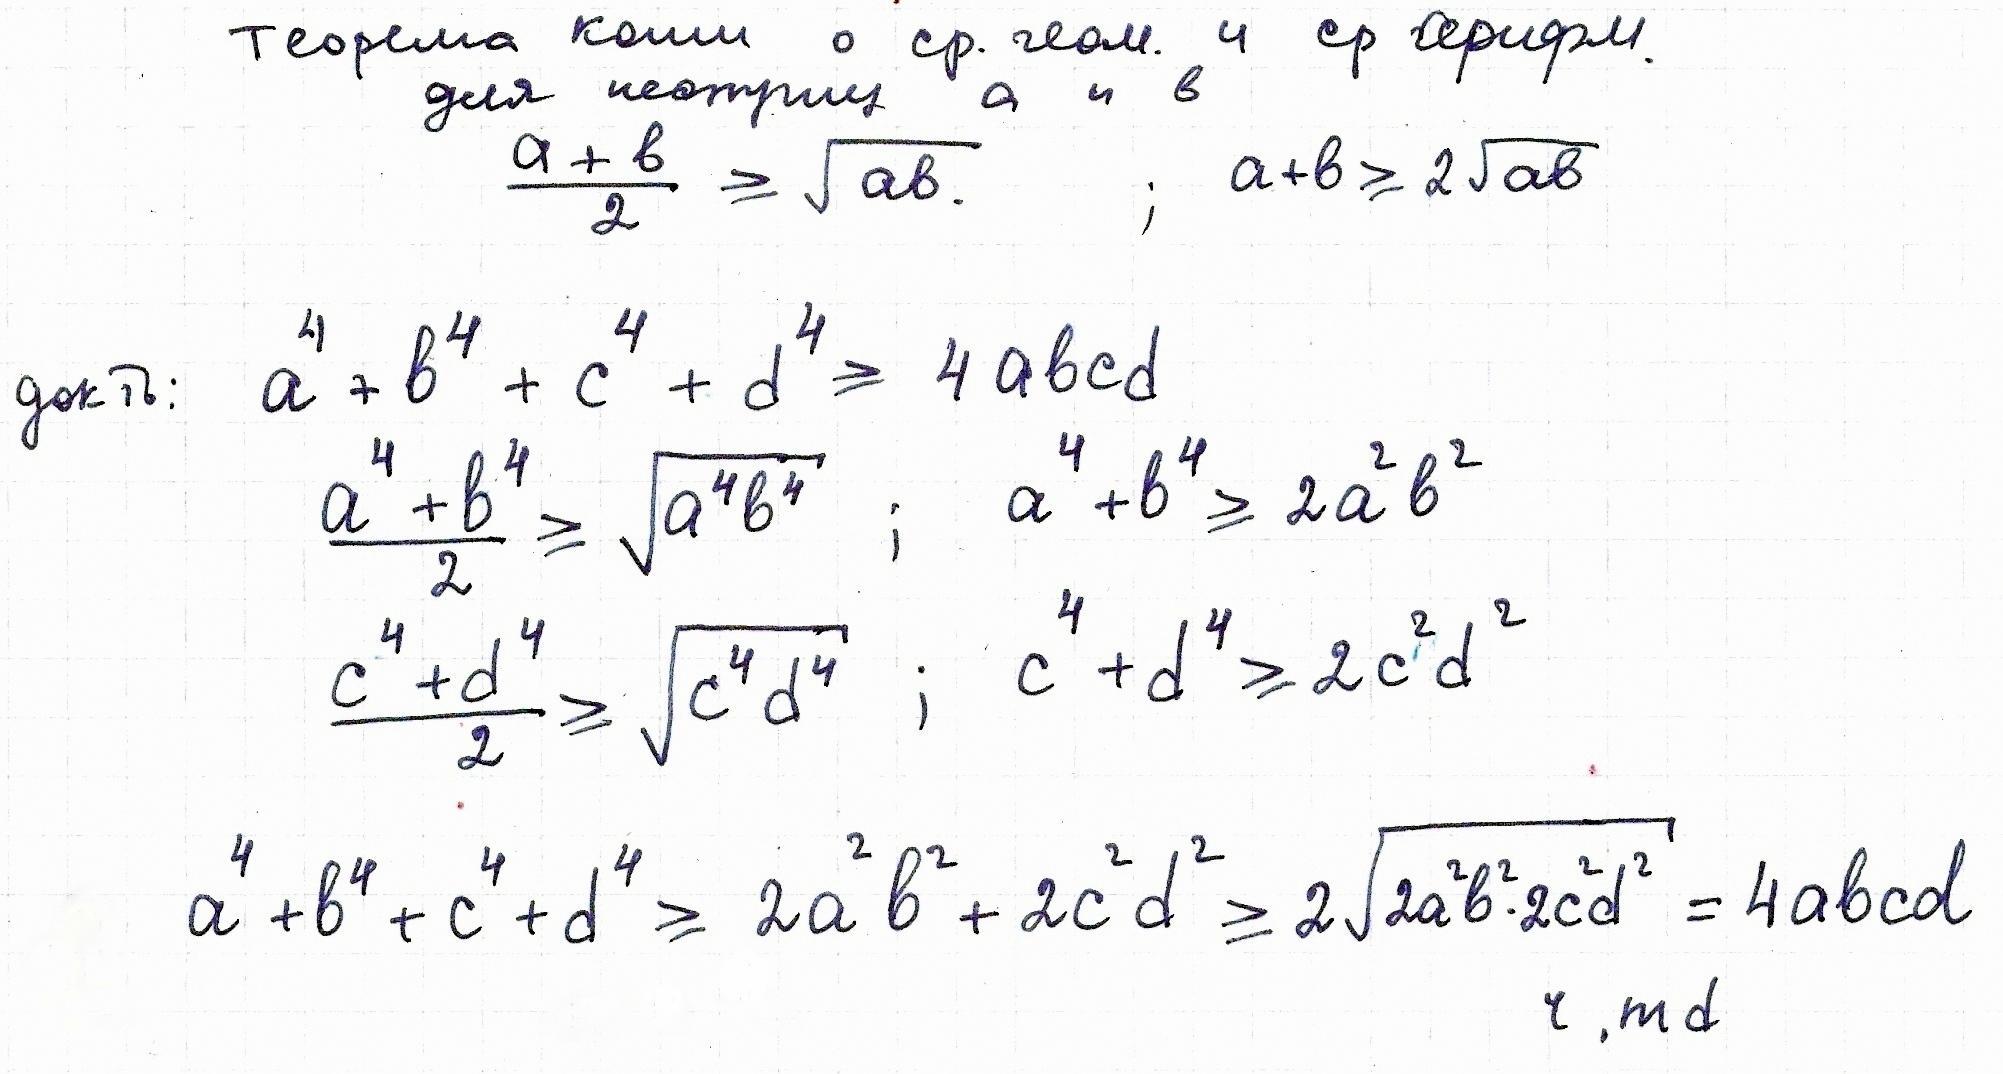 Теорема Коши о ср. геом. и ср арифм.
для неотриц a и b
(a + b)/2 ⩾ √(ab). ; a+b ⩾ 2√(ab)
док ть: a⁴ + b⁴ + c⁴ + d⁴ ⩾ 4abcd
(a⁴ + b⁴)/2 ⩾ √(a⁴b⁴) ; a⁴ + b⁴ ⩾ 2a²b²
(c⁴ + d⁴)/2 ⩾ √(c⁴d⁴) ; c⁴ + d⁴ ⩾ 2c²d²
a⁴ + b⁴ + c⁴ + d⁴ ⩾ 2a²b² + 2c²d² ⩾ 2√(2a²b²·2c²d²) = 4abcd
ч.тd